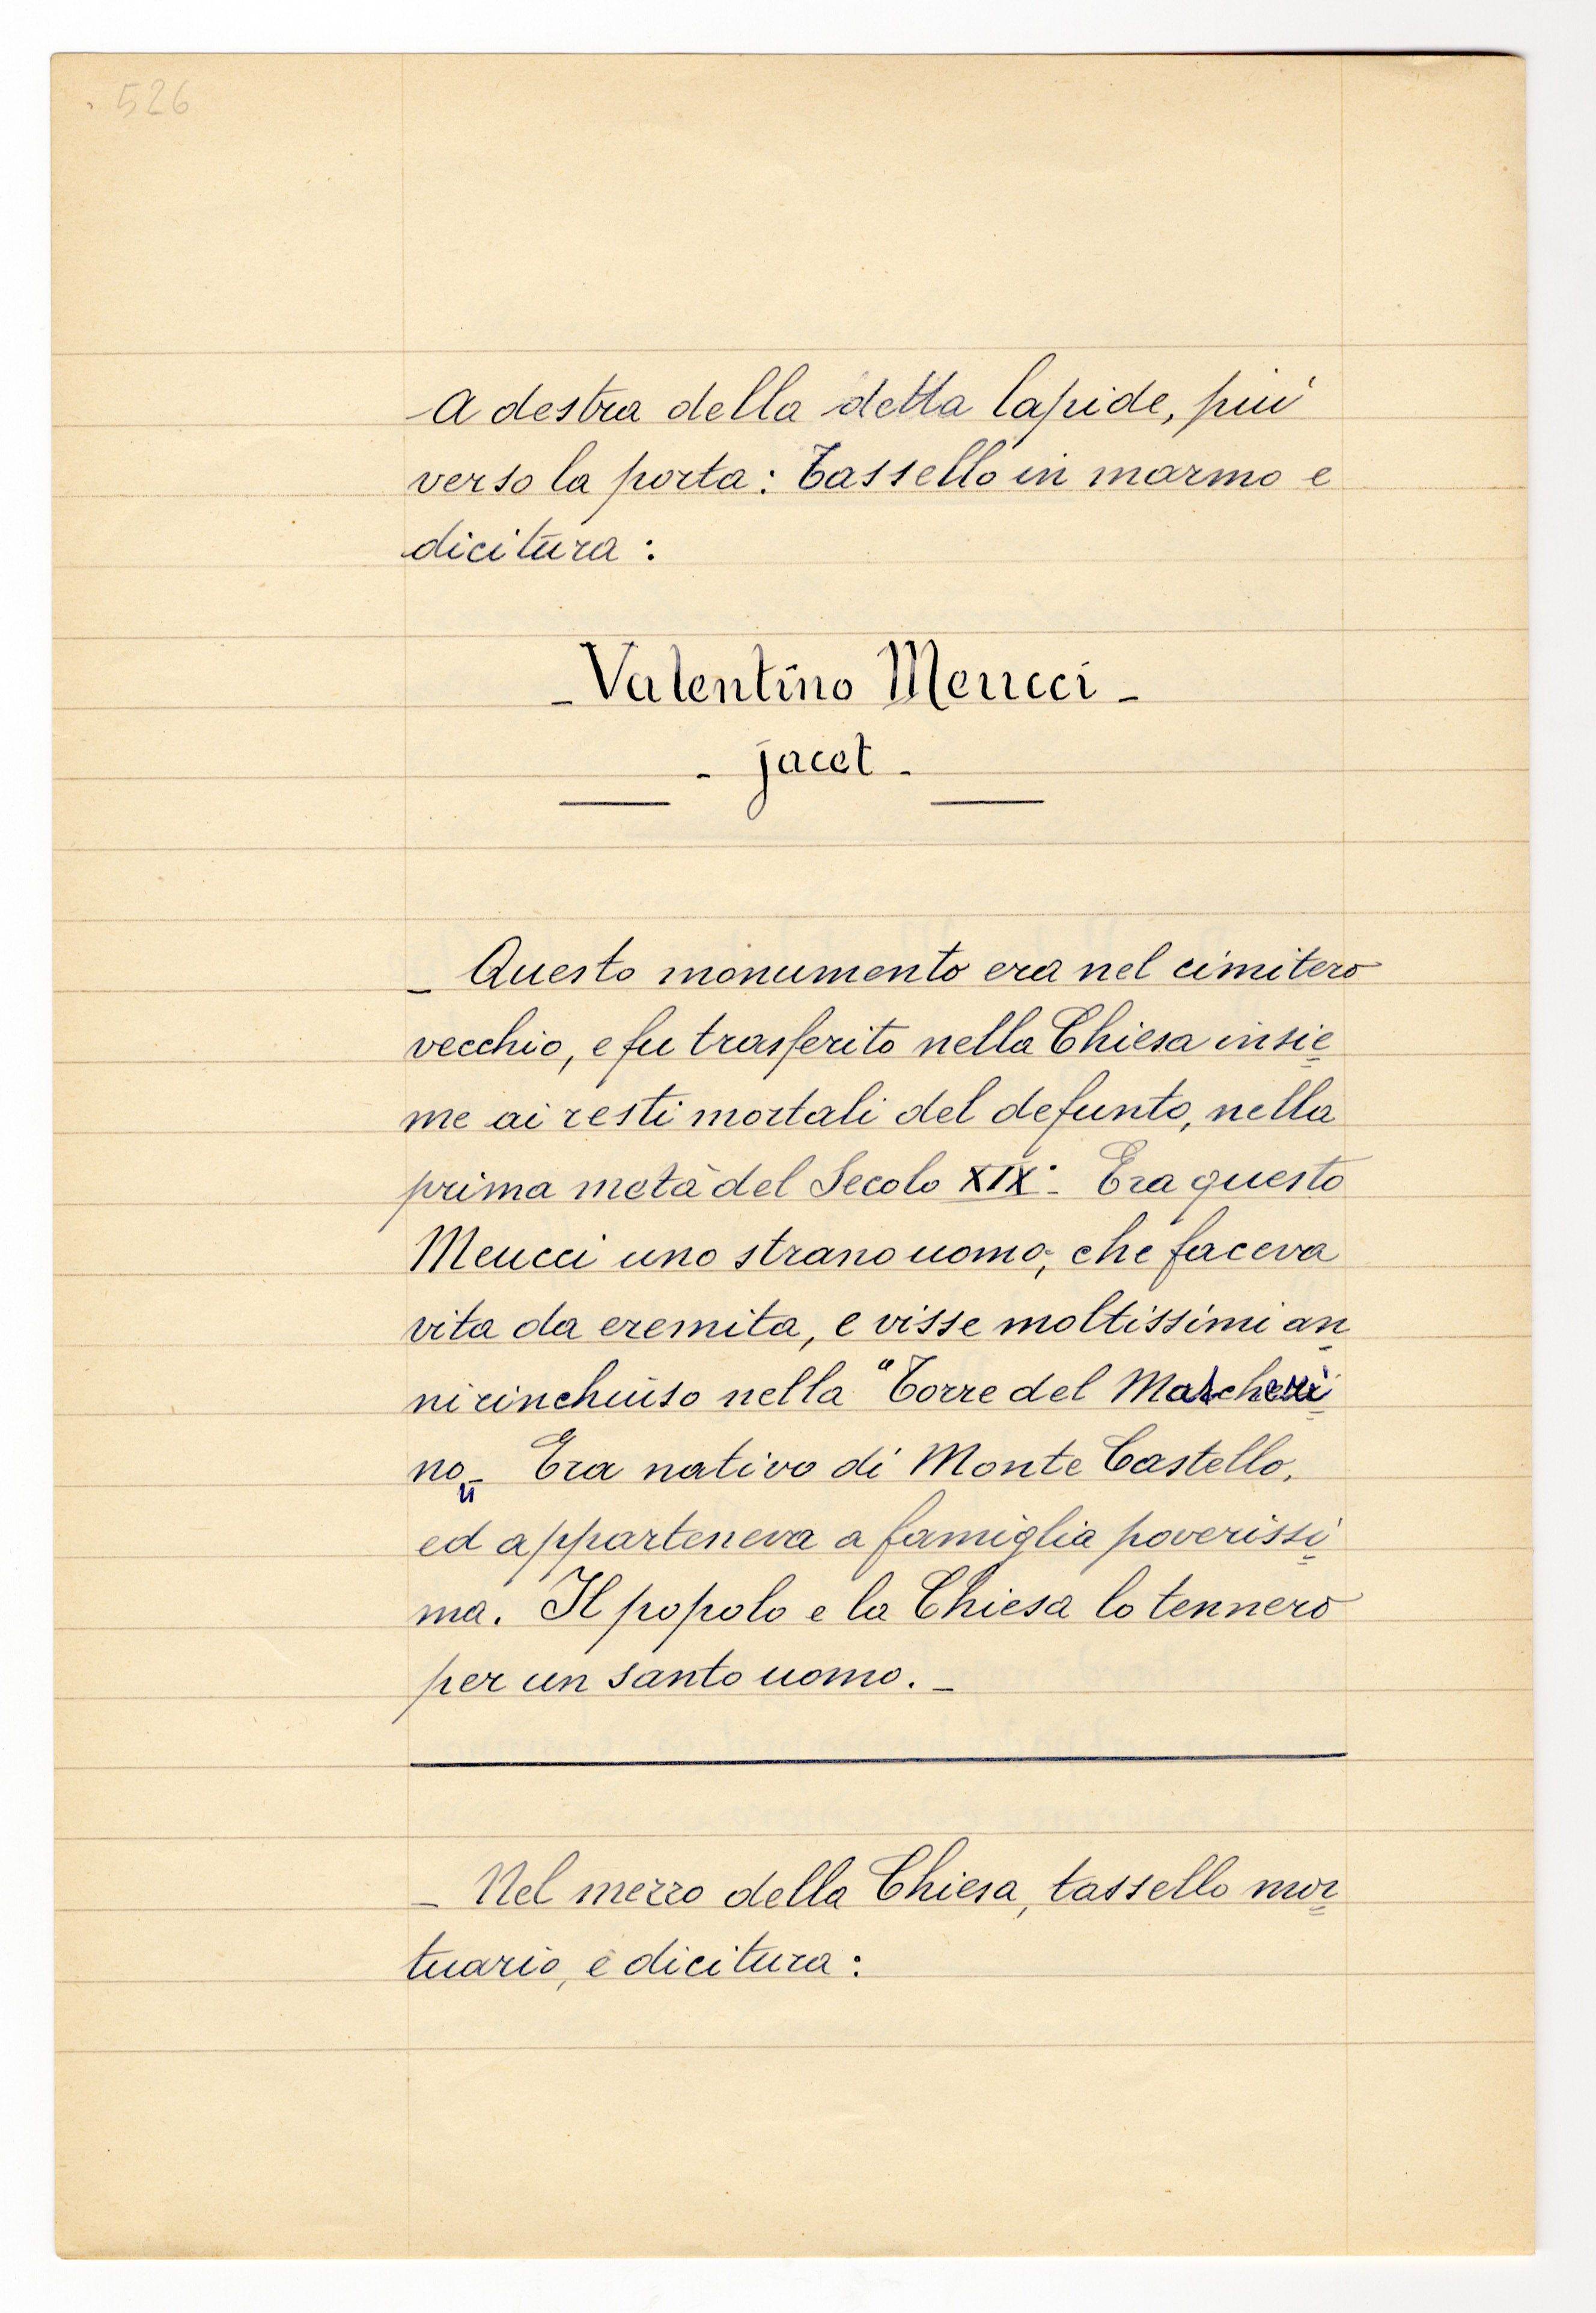 526
A destra della detta lapide, più
verso la porta: Tassello in marmo e
dicitura:
- Valentino Meucci -
- jacet -
- Questo monumento era nel cimitero
vecchio, e fu trasferito nella Chiesa insie
me ai resti mortali del defunto, nella
prima metà del Secolo XIX°- Era questo
Meucci uno strano uomo, che faceva
vita da eremita, e visse moltissimi an
ni rinchiuso nella "Torre del
no„- Era nativo di Monte Castello,
ed apparteneva a famiglia poverissi
ma. Il popolo e la Chiesa lo tennero
per un santo uomo. -
- Nel mezzo della Chiesa, tassello mor
tuario, e dicitura: